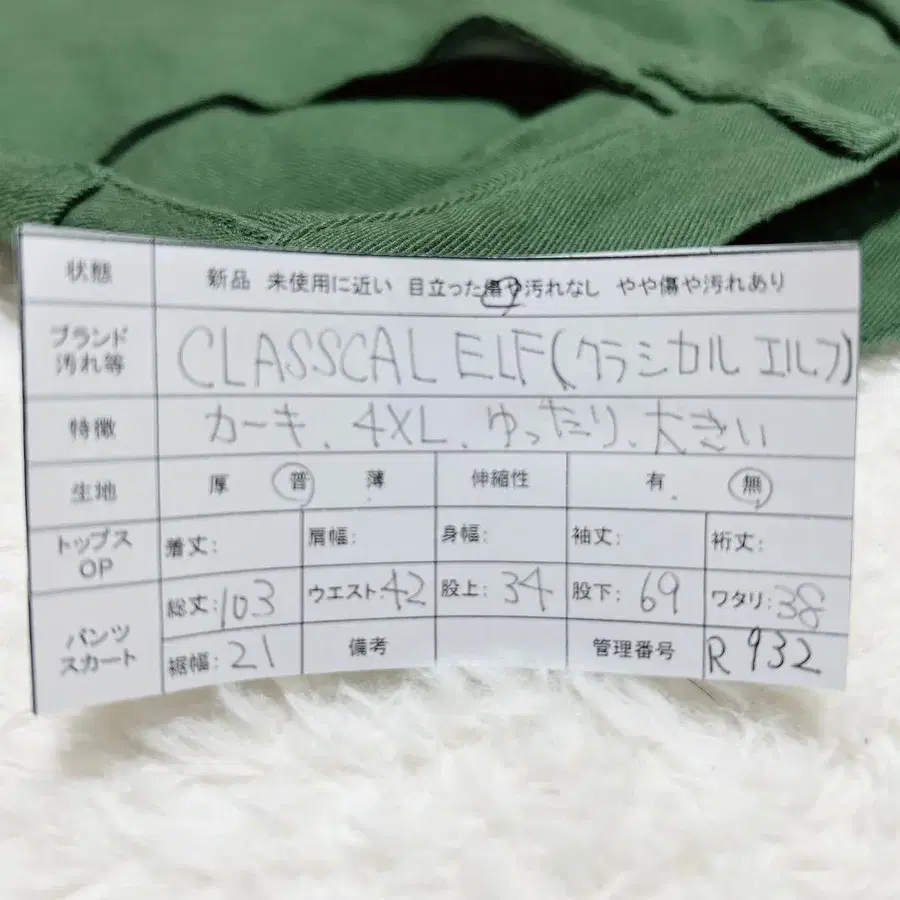 状態 新品 未使用に近い 目立った傷や汚れなし やや傷や汚れあり
ブランド
汚れ等 CLASSCAL ELF(クラシカルエルフ)
特徴 カーキ、4XL、ゆったり、大きい
生地 厚 普 薄 伸縮性 有 無
トップス
OP 着丈: 肩幅: 身幅: 袖丈: 裄丈:
パンツ
スカート 総丈:103 ウエスト:42 股上:34 股下:69 ワタリ:38
裾幅:21 備考 管理番号 R932